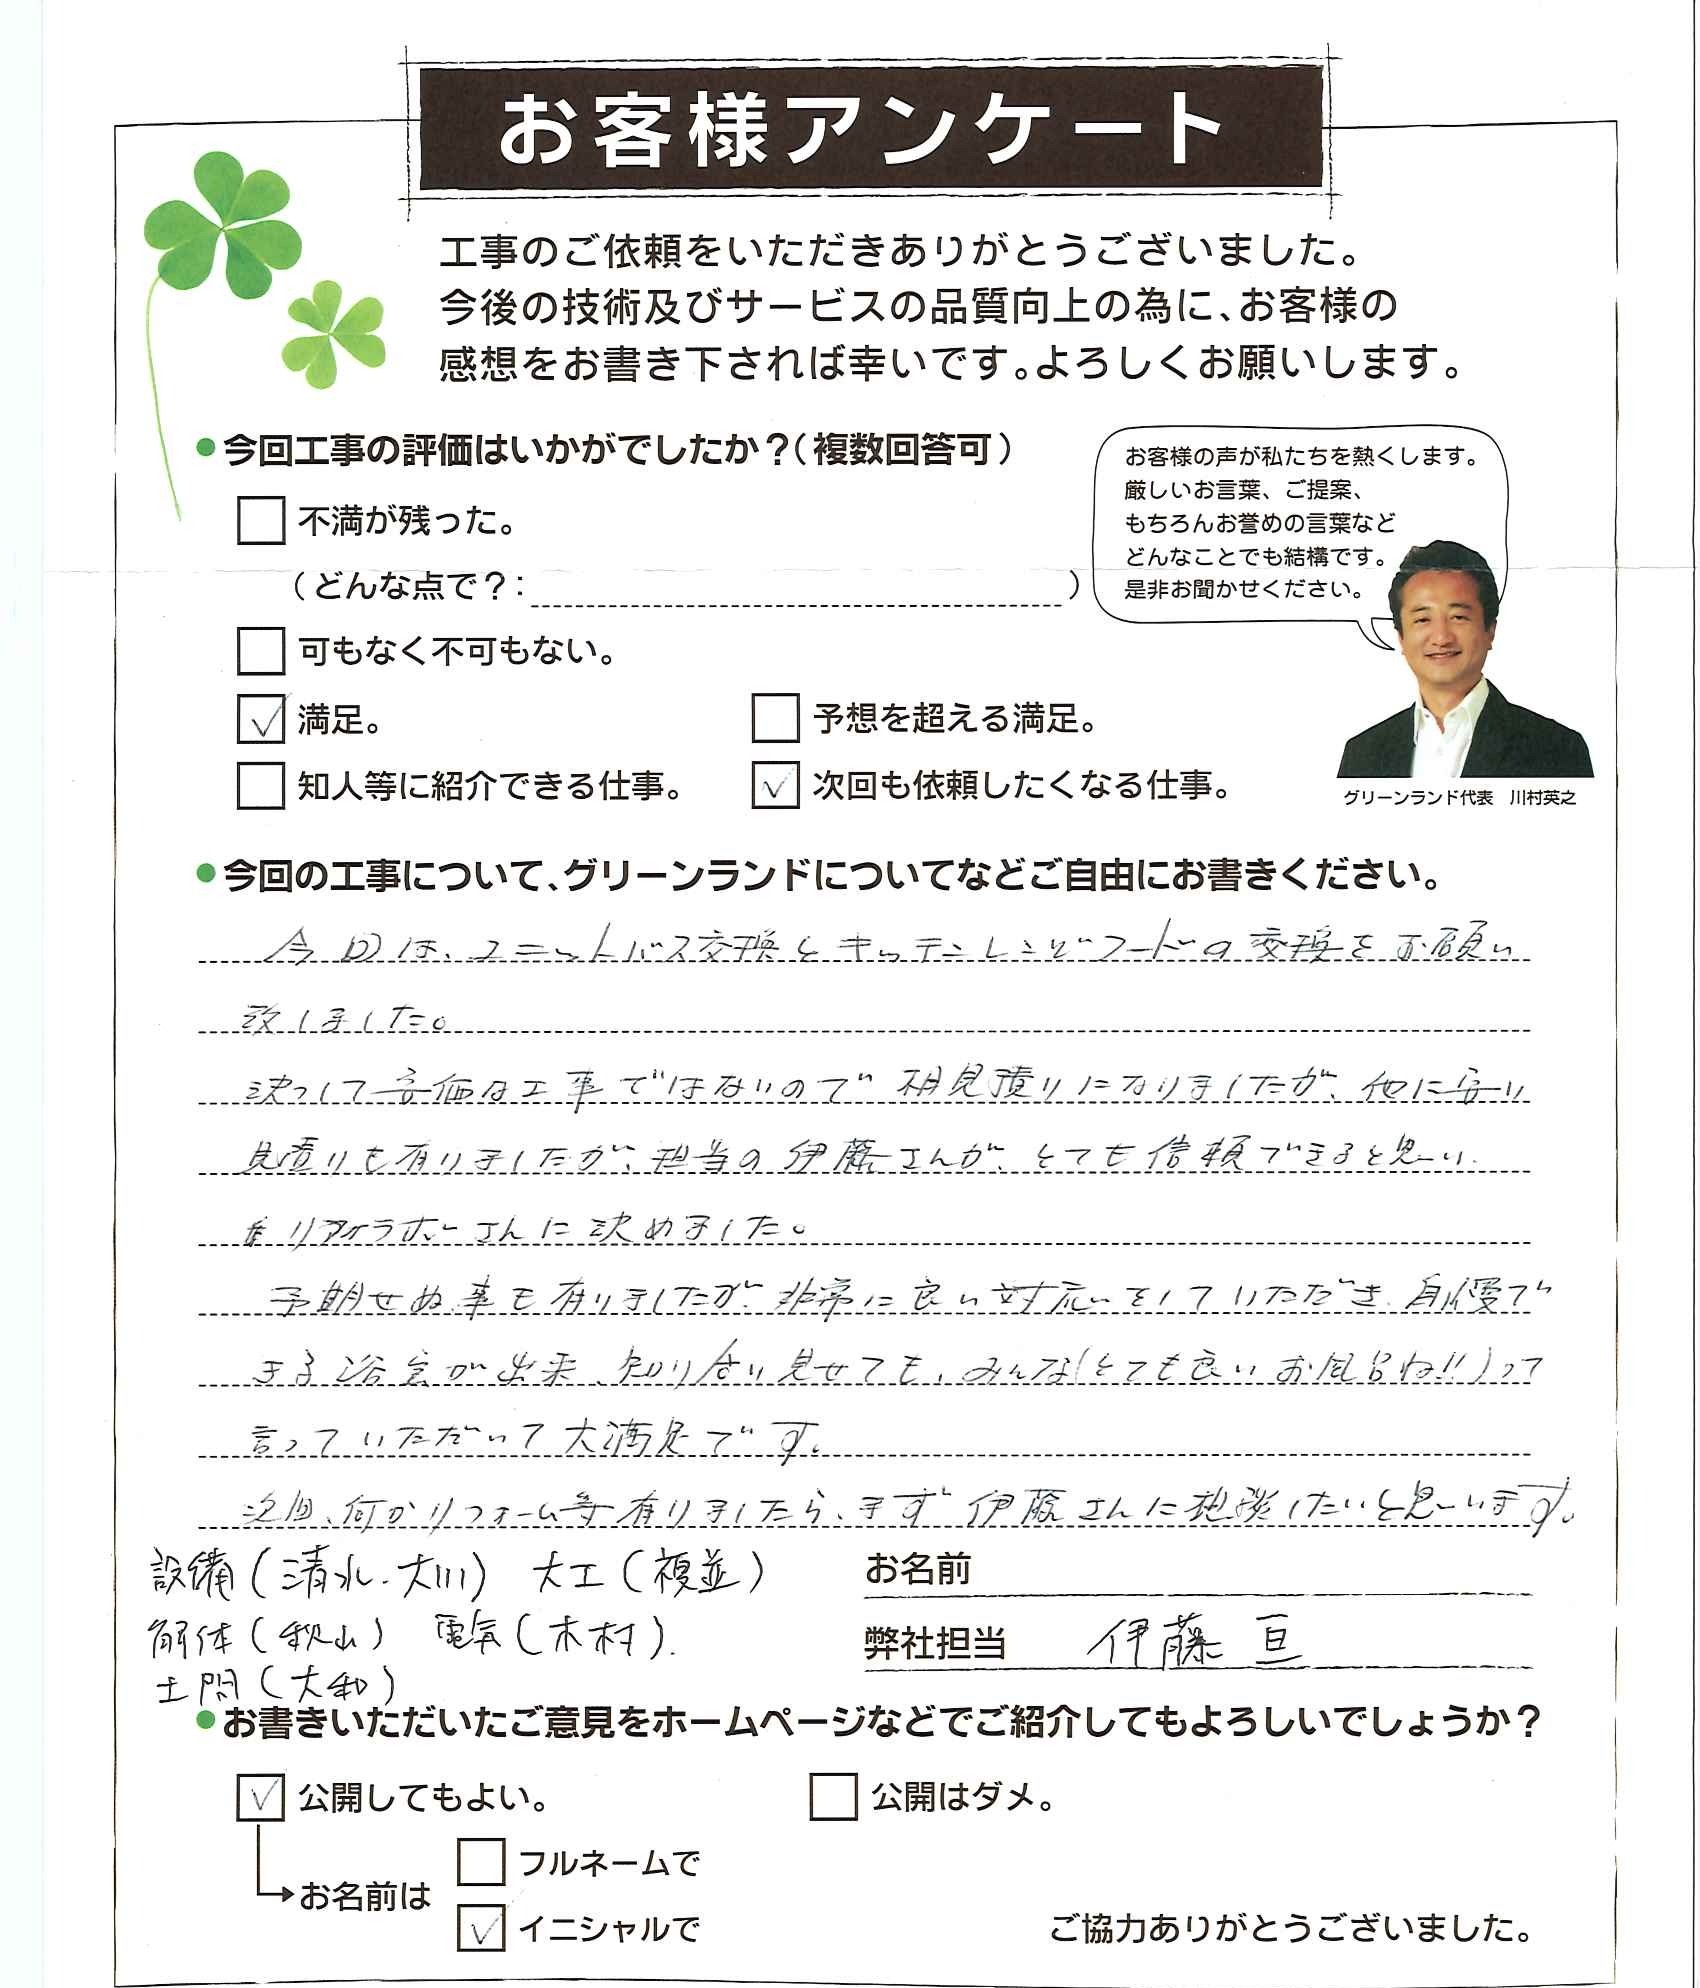 お客様アンケート
工事のご依頼をいただきありがとうございました。
今後の技術及びサービスの品質向上の為に、お客様の
感想をお書き下されば幸いです。よろしくお願いします。
●今回工事の評価はいかがでしたか?(複数回答可)
不満が残った。
(どんな点で?: )
可もなく不可もない。
✓ 満足。 予想を超える満足。
知人等に紹介できる仕事。 ✓ 次回も依頼したくなる仕事。
お客様の声が私たちを熱くします。
厳しいお言葉、ご提案、
もちろんお誉めの言葉など
どんなことでも結構です。
是非お聞かせください。
グリーンランド代表 川村英之
●今回の工事について、グリーンランドについてなどご自由にお書きください。
今回は、ユニットバス交換とキッチンレンジフードの交換をお願い
致しました。
決っして安価な工事ではないので相見積りになりましたが、他に安い
見積りも有りましたが、担当の伊藤さんが、とても信頼できると思い、
リアイラボーさんに決めました。
予期せぬ事も有りましたが、非常に良い対応いをしていただき、自慢で
きる浴室が出来、知り合い見せても、みんな(とても良いお風呂ね!!)って
言っていただいて大満足です。
次回、何かリフォーム等有りましたら、まず伊藤さんに相談したいと思いいます。
設備(清水.大川) 大工(複並)
解体(秋山) 電気(木村).
土間(大和)
お名前
弊社担当 伊藤 亘
●お書きいただいたご意見をホームページなどでご紹介してもよろしいでしょうか?
✓ 公開してもよい。 公開はダメ。
→お名前は
フルネームで
✓ イニシャルで
ご協力ありがとうございました。